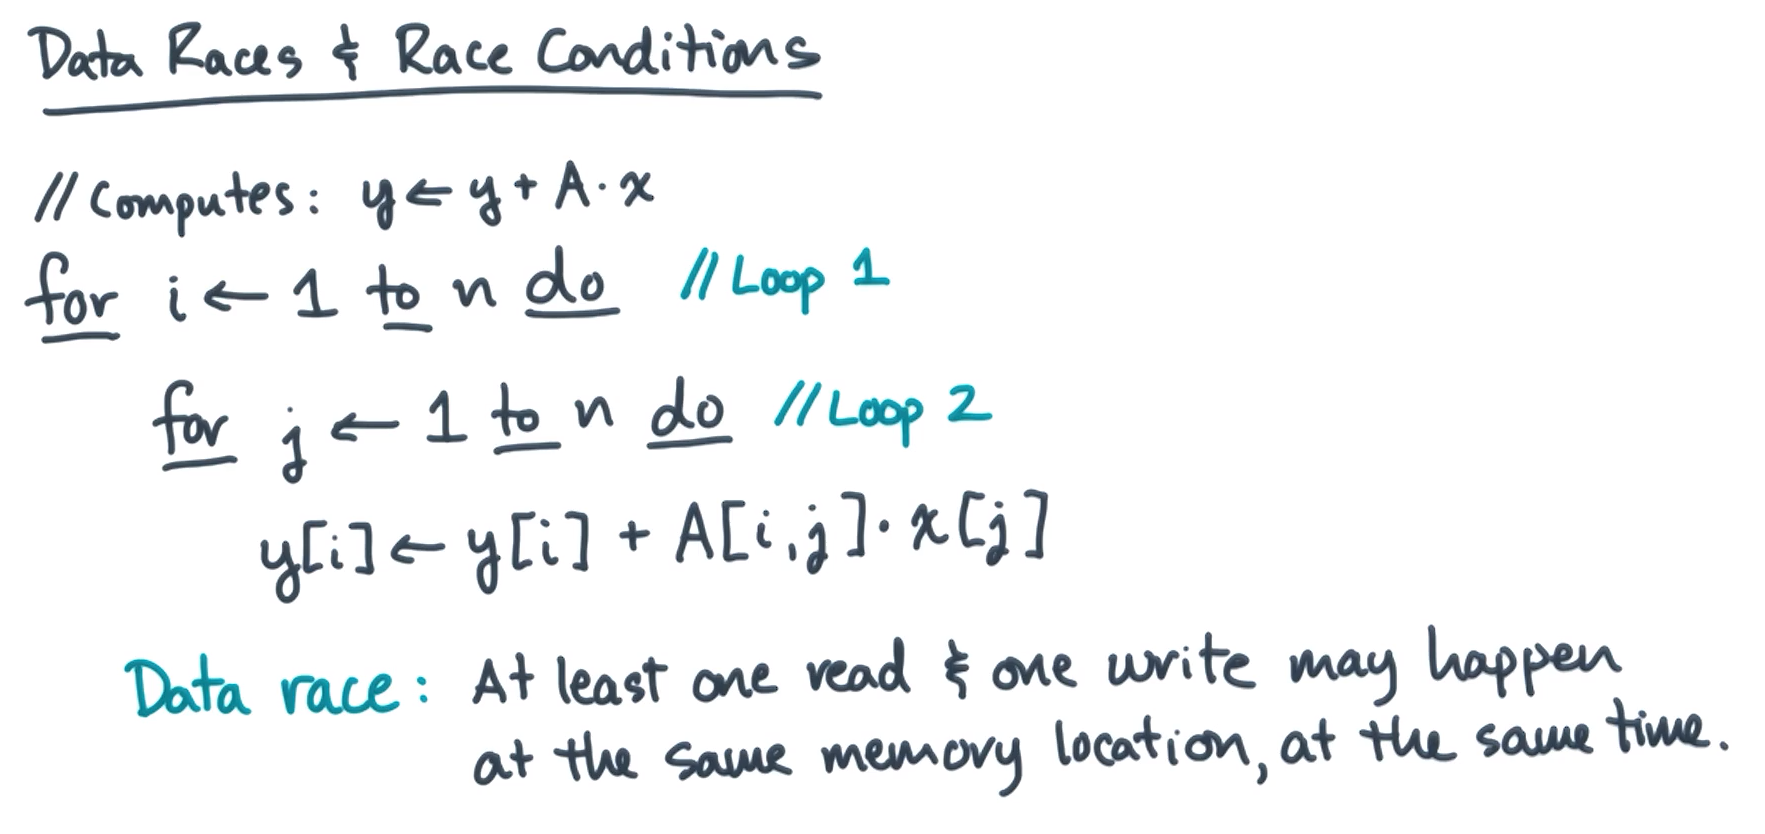 Data Races & Race Conditions
// Computes: y ← y + A · x
for i ← 1 to n do // Loop 1
for j ← 1 to n do // Loop 2
y[i] ← y[i] + A[i,j] · x[j]
Data race: At least one read & one write may happen
at the same memory location, at the same time.